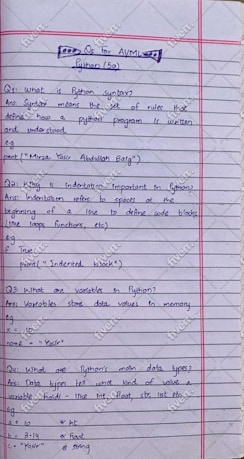 Qs for AVML
Python (50)
Q1: What is Python syntax?
Ans: Syntax means the set of rules that
define how a python program is written
and understood.
e.g
print ("Mirza Yasir Abdullah Baig")
Q2: Why is Indentation important in Python?
Ans: Indentation refers to spaces at the
beginning of a line to define code blocks
(like loops functions, etc)
e.g
if True:
print(" Indented block")
Q3: What are variables in Python?
Ans: Variables store data values in memory
e.g
x = 10
name = "Yasir"
Q4: What are Python's main data types?
Ans: Data types tell what kind of value a
variable holds - like int, float, str, list etc.
e.g
a = 10 # int
b = 3.14 # float
c = "Yasir" # string